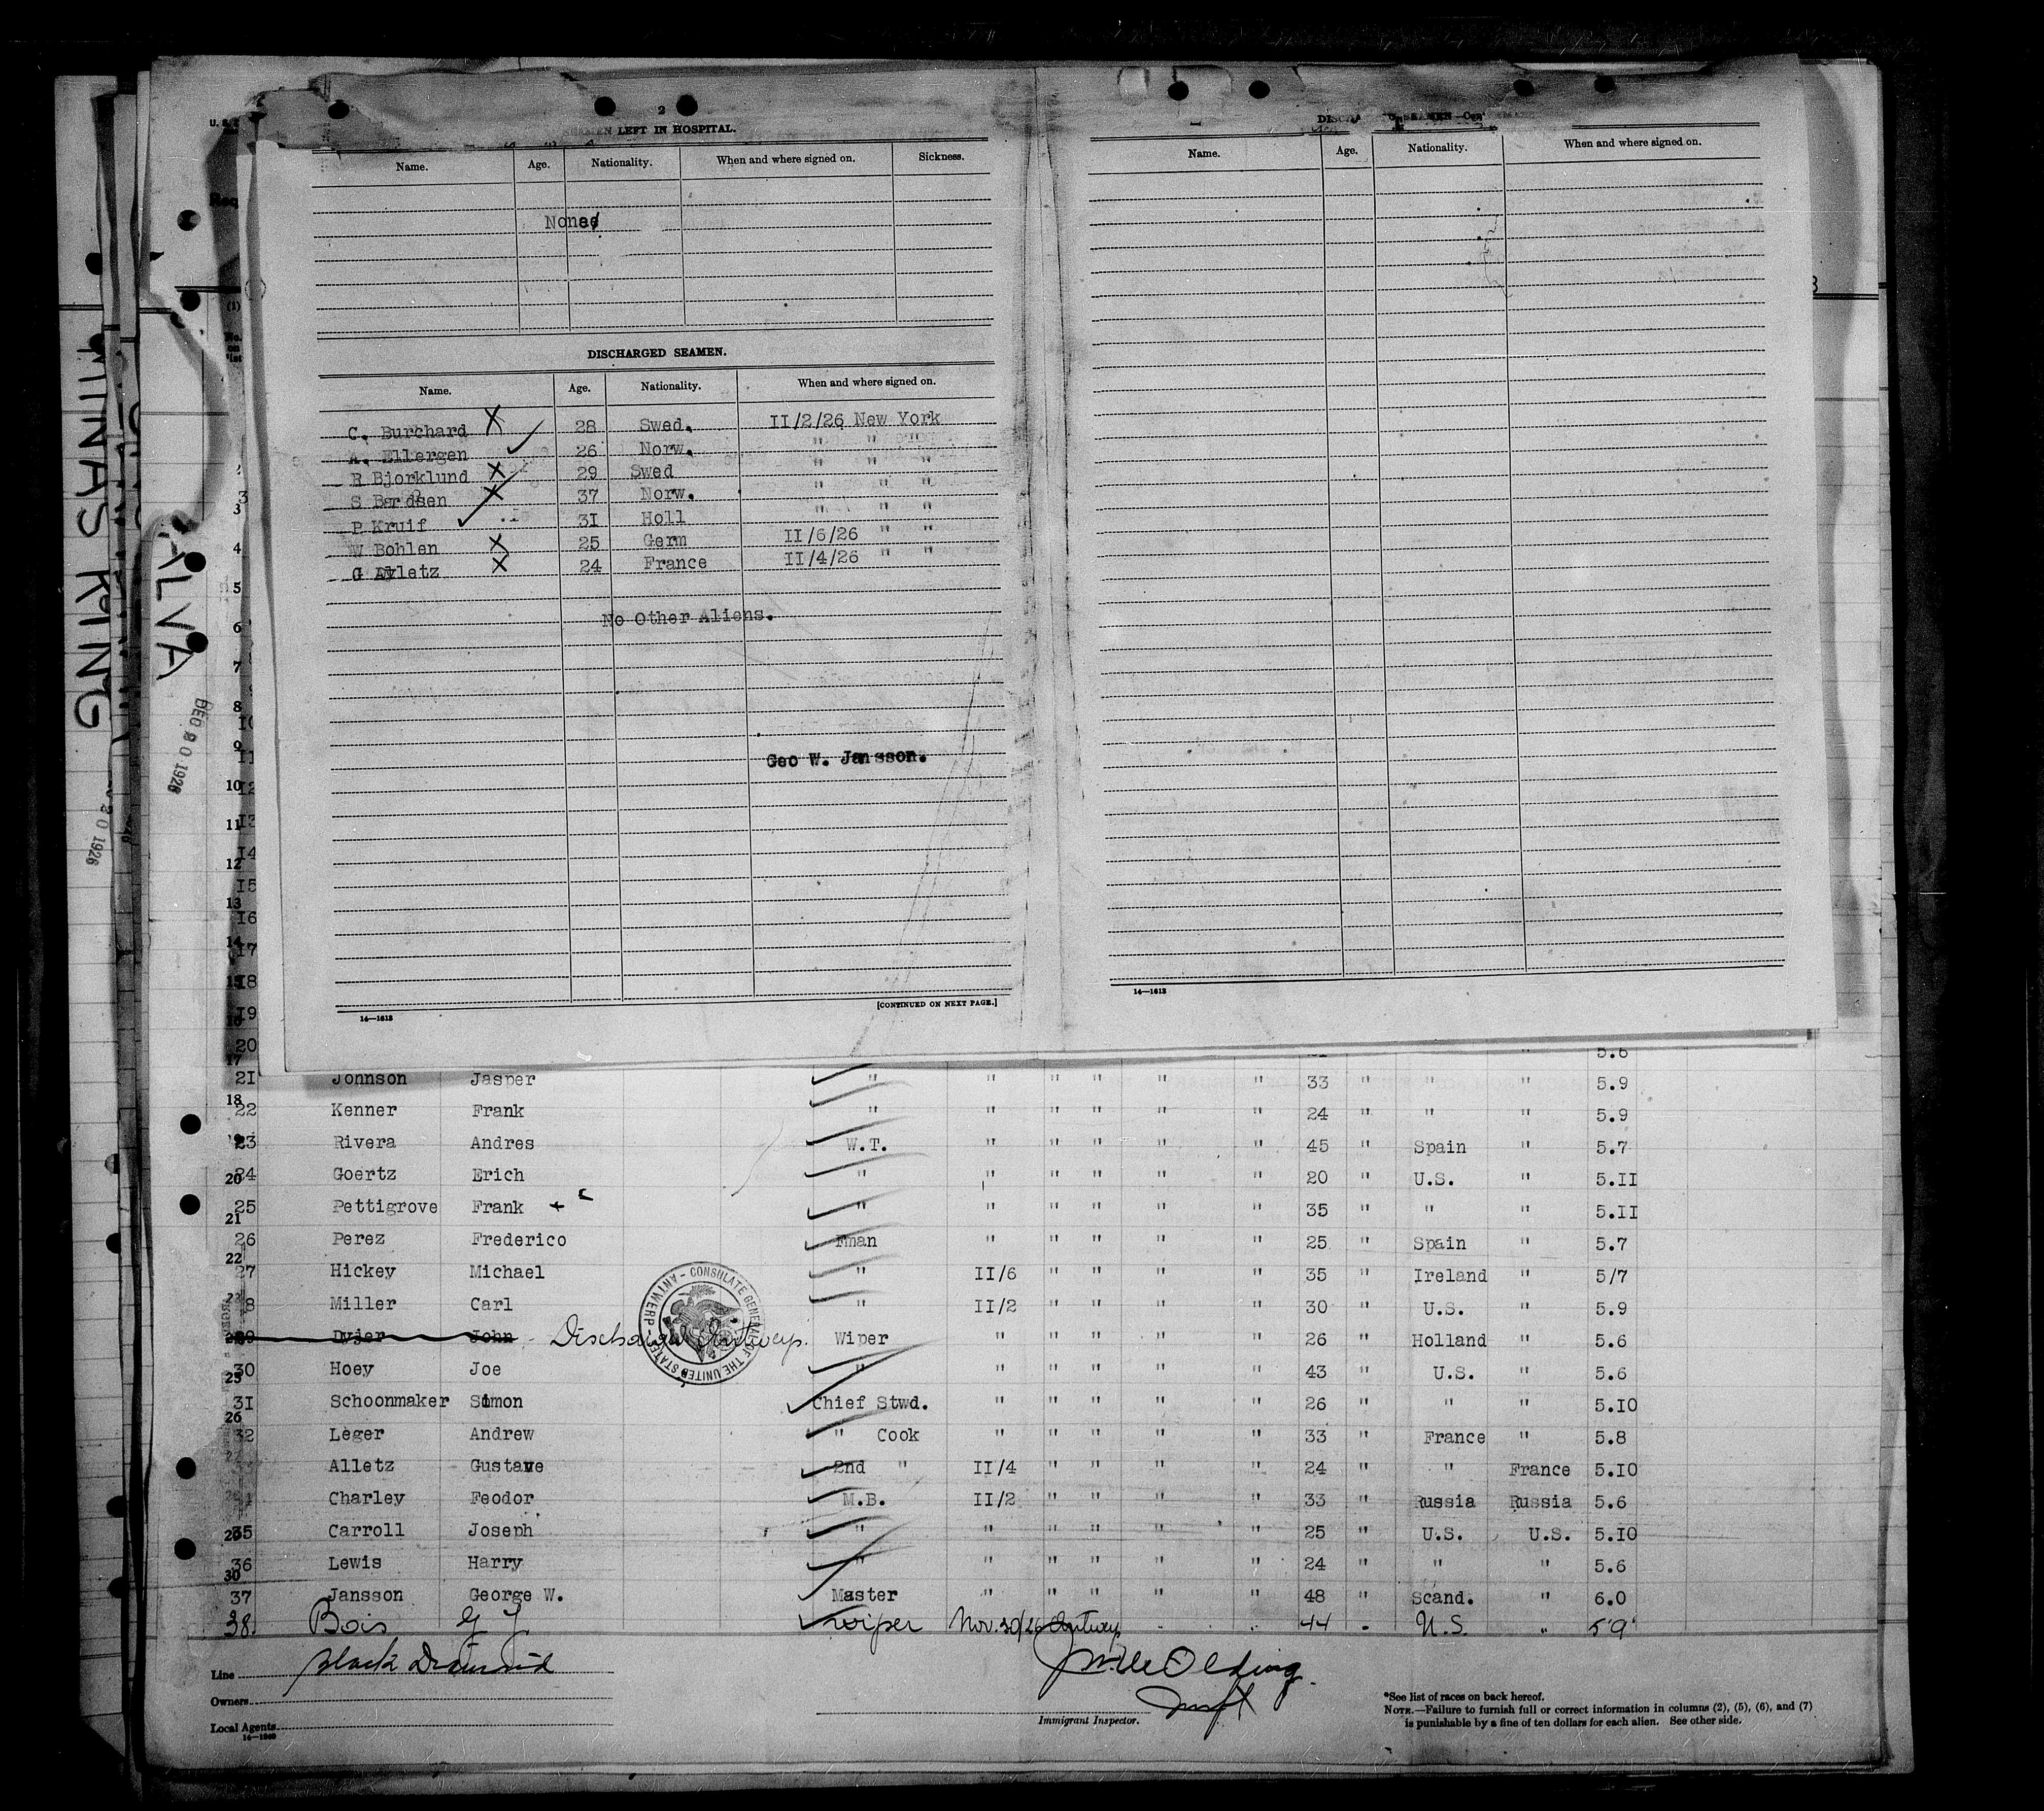 2
SEAMEN LEFT IN HOSPITAL.
Name. Age. Nationality. When and where signed on. Sickness.
None
DISCHARGED SEAMEN.
Name. Age. Nationality. When and where signed on.
C. Burchard X 28 Swed. II/2/26 New York
A. Ellergen ✓ 26 Norw. " " "
R Bjorklund X 29 Swed " " "
S Bardsen X 37 Norw. " " "
P Kruif ✓ 3I Holl " " "
W Bohlen X 25 Germ II/6/26 " "
G Alletz X 24 France II/4/26 " "
No Other Aliens.
Geo W. Jansson.
[CONTINUED ON NEXT PAGE.]
14—1613
DISCHARGED SEAMEN—Con
Name. Age. Nationality. When and where signed on.
14—1613
MINAS KING
ALVA
DEC 20 1926
20 1926
U. S.
Req
(1)
No. on list
3
3
4
5
6
7
8
I0
9
II
10
I2
11
I3
I4
12
I5
13
I6
14
I7
I8
I9
20
17
" 5.6
2I Johnson Jasper " " " " " " 33 " " " 5.9
18
22 Kenner Frank " " " " " " 24 " " " 5.9
23 Rivera Andres W.T. " " " " " 45 " Spain " 5.7
24 Goertz Erich " " " " " " 20 " U.S. " 5.II
20
25 Pettigrove Frank + " " " " " " 35 " " " 5.II
21
26 Perez Frederico Fman " " " " " 25 " Spain " 5.7
22
27 Hickey Michael " II/6 " " " " 35 " Ireland " 5/7
28 Miller Carl " II/2 " " " " 30 " U.S. " 5.9
29 Dyjer John - Discharged Antwerp. Wiper " " " " " 26 " Holland " 5.6
CONSULATE GENERAL OF THE UNITED STATES - ANTWERP
30 Hoey Joe " " " " " " 43 " U.S. " 5.6
25
3I Schoonmaker Simon Chief Stwd. " " " " " 26 " " " 5.I0
26
32 Leger Andrew " Cook " " " " " 33 " France " 5.8
Alletz Gustave 2nd " II/4 " " " " 24 " " France 5.I0
Charley Feodor M.B. II/2 " " " " 33 " Russia Russia 5.6
35 Carroll Joseph " " " " " " 25 " U.S. U.S. 5.I0
36 Lewis Harry " " " " " " 24 " " " 5.6
30
37 Jansson George W. Master " " " " " 48 " Scand. " 6.0
38. Bois G J Wiper Nov. 30/26 Antwerp 44 - U.S. " 5'9"
Line Black Diamond
Owners
Local Agents
14—1540
Immigrant Inspector.
*See list of races on back hereof.
NOTE.—Failure to furnish full or correct information in columns (2), (5), (6), and (7)
is punishable by a fine of ten dollars for each alien. See other side.